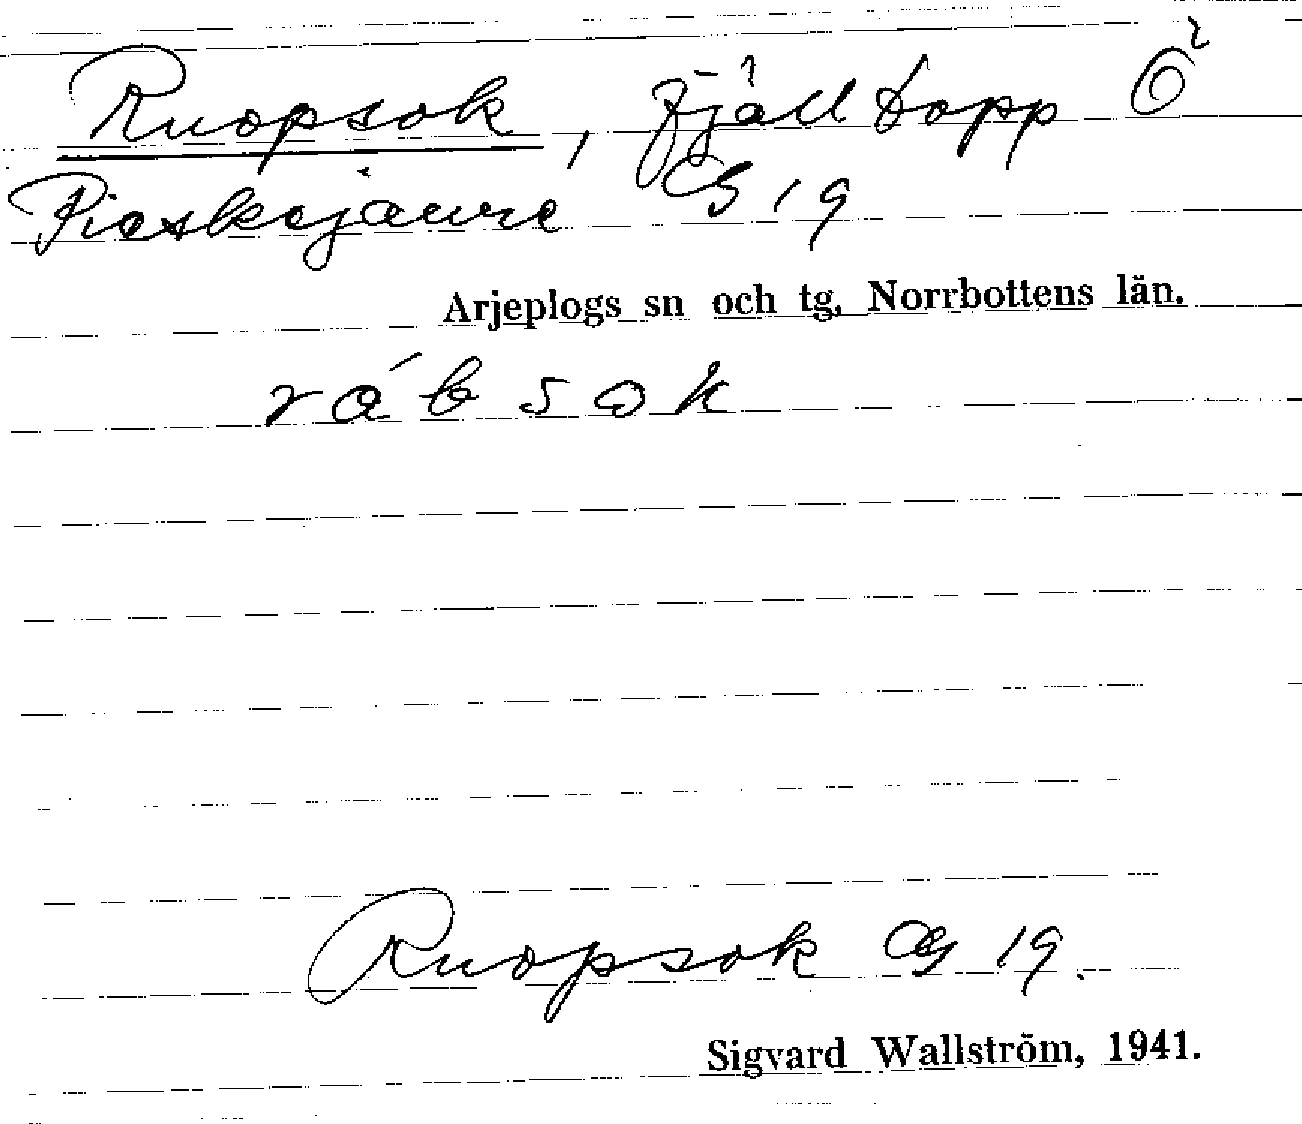 Ruopsok, fjälltopp Ö
Pieskejaure G 19
Arjeplogs sn och tg, Norrbottens län.
rábsok
Ruopsok G 19.
Sigvard Wallström, 1941.